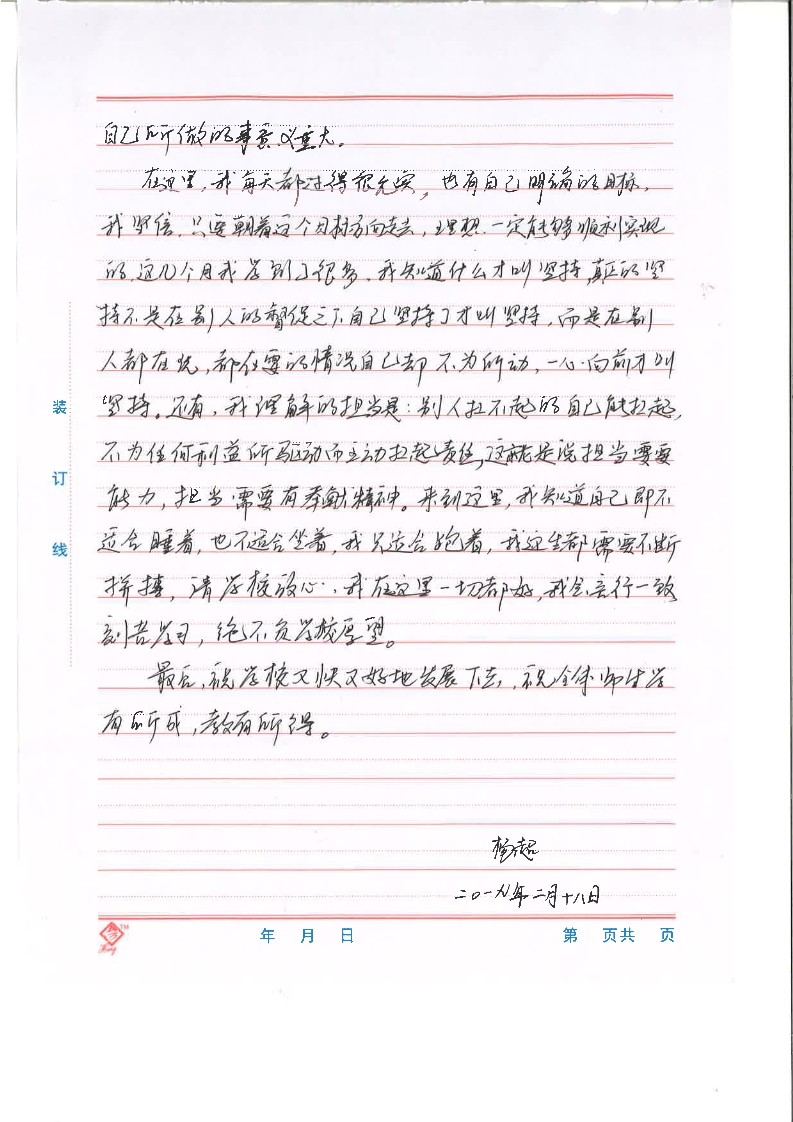 自己所做的事意义重大。
在这里,我每天都过得很充实,也有自己明确的目标,
我坚信,只要朝着这个目标方向走去,理想一定能够顺利实现
的。这几个月我学到了很多,我知道什么才叫坚持,真正的坚
持不是在别人的督促之下自己坚持了才叫坚持,而是在别
人都在玩,都在耍的情况自己却不为所动,一心向前才叫
坚持。还有,我理解的担当是:别人扛不起的自己能扛起,
不为任何利益所驱动而主动扛起责任,这就是说担当需要
能力,担当需要有奉献精神。来到这里,我知道自己即不
适合睡着,也不适合坐着,我只适合跑着,我这生都需要不断
拼搏,请学校放心,我在这里一切都好,我会言行一致
刻苦学习,绝不负学校厚望。
最后,祝学校又快又好地发展下去,祝全体师生学
有所成,教有所得。
杨超
二0一九年二月十八日
装
订
线
年 月 日 第 页共 页